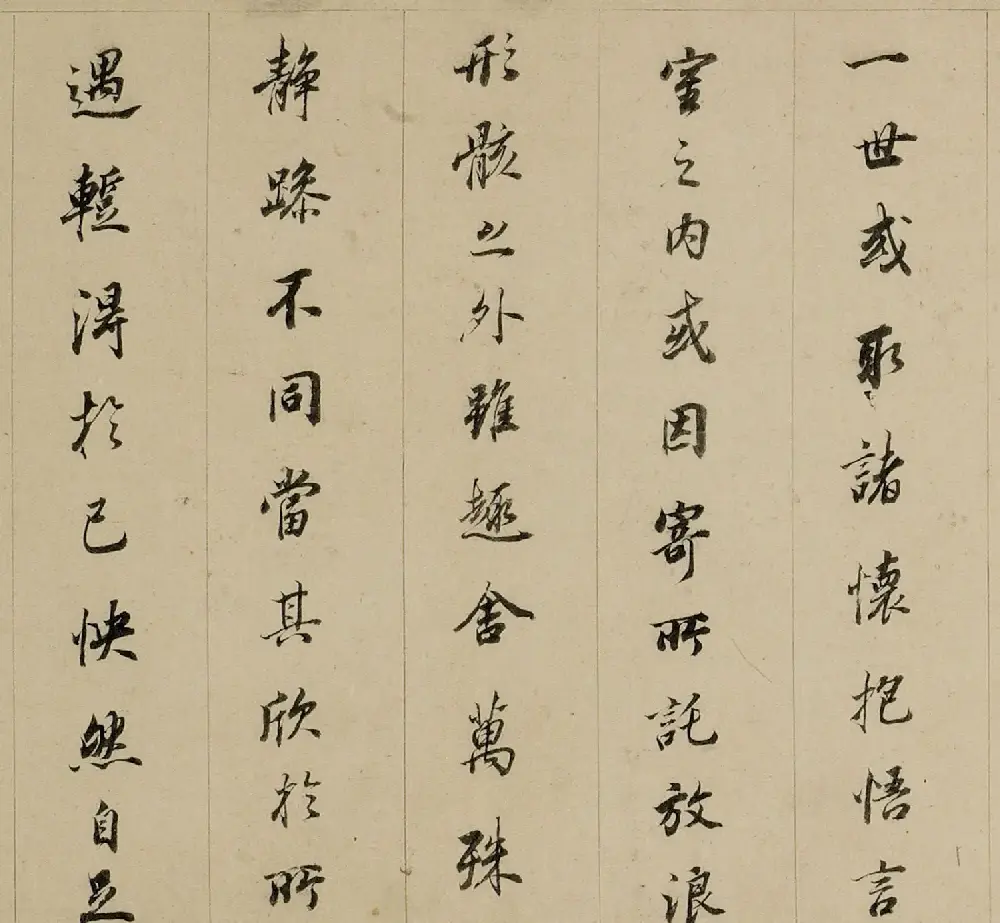 一世或取諸懷抱悟言
室之内或因寄所託放浪
形骸之外雖趣舍萬殊
静躁不同當其欣於所
遇蹔得於己怏然自足